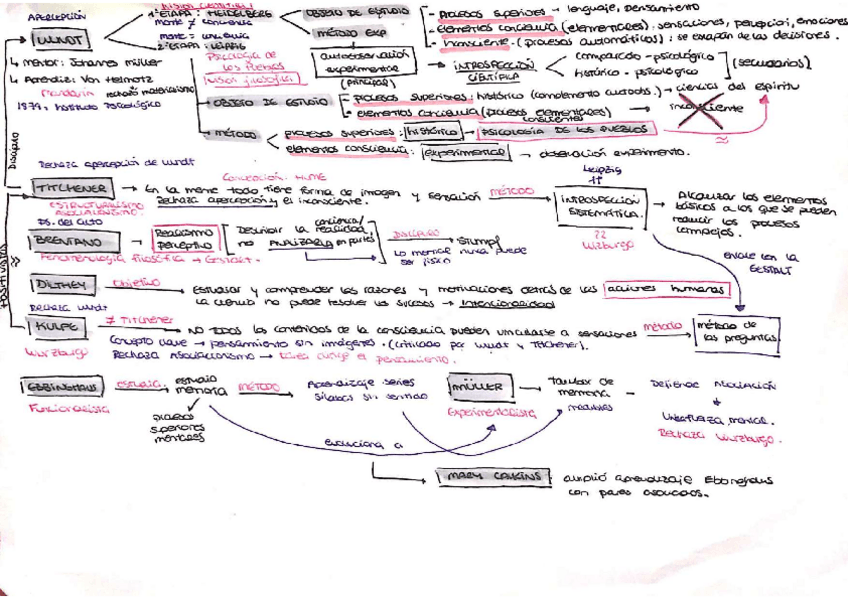 APERCEPCIÓN
WUNDT
1ª ETAPA: HEIDELBERG
mente ≠ conciencia
mente = conciencia
2ª ETAPA: LEIPZIG
OBJETO DE ESTUDIO
procesos superiores → lenguaje, pensamiento
elementos conciencia (elementales): sensaciones, percepción, emociones
inconsciente (procesos automáticos): se escapan de las decisiones.
MÉTODO EXP
autoobservación
experimental
(principal)
INTROSPECCIÓN
CIENTÍFICA
comparado-psicológico
histórico-psicológico
(secundarios)
↳ mentor: Johannes müller
↳ Aprendiz: Von Helmotz
Mandarín rechazó materialismo
1879, Instituto Psicológico
Psicología de
los Pueblos
OBJETO DE ESTUDIO
procesos superiores: histórico → ciencia del espíritu
elementos conciencia (procesos elementales) → inconsciente
conscientes
MÉTODO
procesos superiores: histórico → PSICOLOGIA DE LOS PUEBLOS
elementos consciencia: experimental → observación experimento.
Discípulo
Rechaza apercepción de Wundt
TITCHENER
ESTRUCTURALISMO
ASOCIACIONISMO
Concepción: HUME
En la mente todo tiene forma de imagen y sensación
Rechaza apercepción y el inconsciente.
MÉTODO
Leipzig
INTROSPECCIÓN
SISTEMÁTICA.
Wizburgo
Alcanzar los elementos
básicos a los que se pueden
reducir los procesos
complejos.
Ps. del acto
BRENTANO
REALISMO
PERCEPTIVO
Describir la realidad,
conciencia/
no ANALIZARLA en partes
DISCÍPULO
Stumpf
Lo mental nunca puede
ser físico
Fenomenología filosófica → Gestalt.
enlace con la
GESTALT
DILTHEY
Objetivo
estudiar y comprender las razones y motivaciones detrás de las acciones humanas
La ciencia no puede resolver los sucesos → intencionalidad
Positivistas
Rechaza Wundt
KULPE
Wurzburgo
≠ Titchener
NO TODOS los contenidos de la consciencia pueden vincularse a sensaciones
Concepto clave → pensamiento sin imágenes. (criticado por Wundt y Titchener).
Rechaza Asociacionismo → tarea dirige el pensamiento.
método
método de
las preguntas
EBBINGHAUS
Funcionalista
ESTUDIA
estudio
memoria
procesos
superiores
mentales
MÉTODO
Aprendizaje series
Sílabas sin sentido
MÜLLER
Experimentalista
Tambor de
memoria
Defiende ASOCIACIÓN
mental.
Rechaza Wurzburgo.
evoluciona a
MARY CALKINS
amplió aprendizaje Ebbinghaus
con pares asociados.